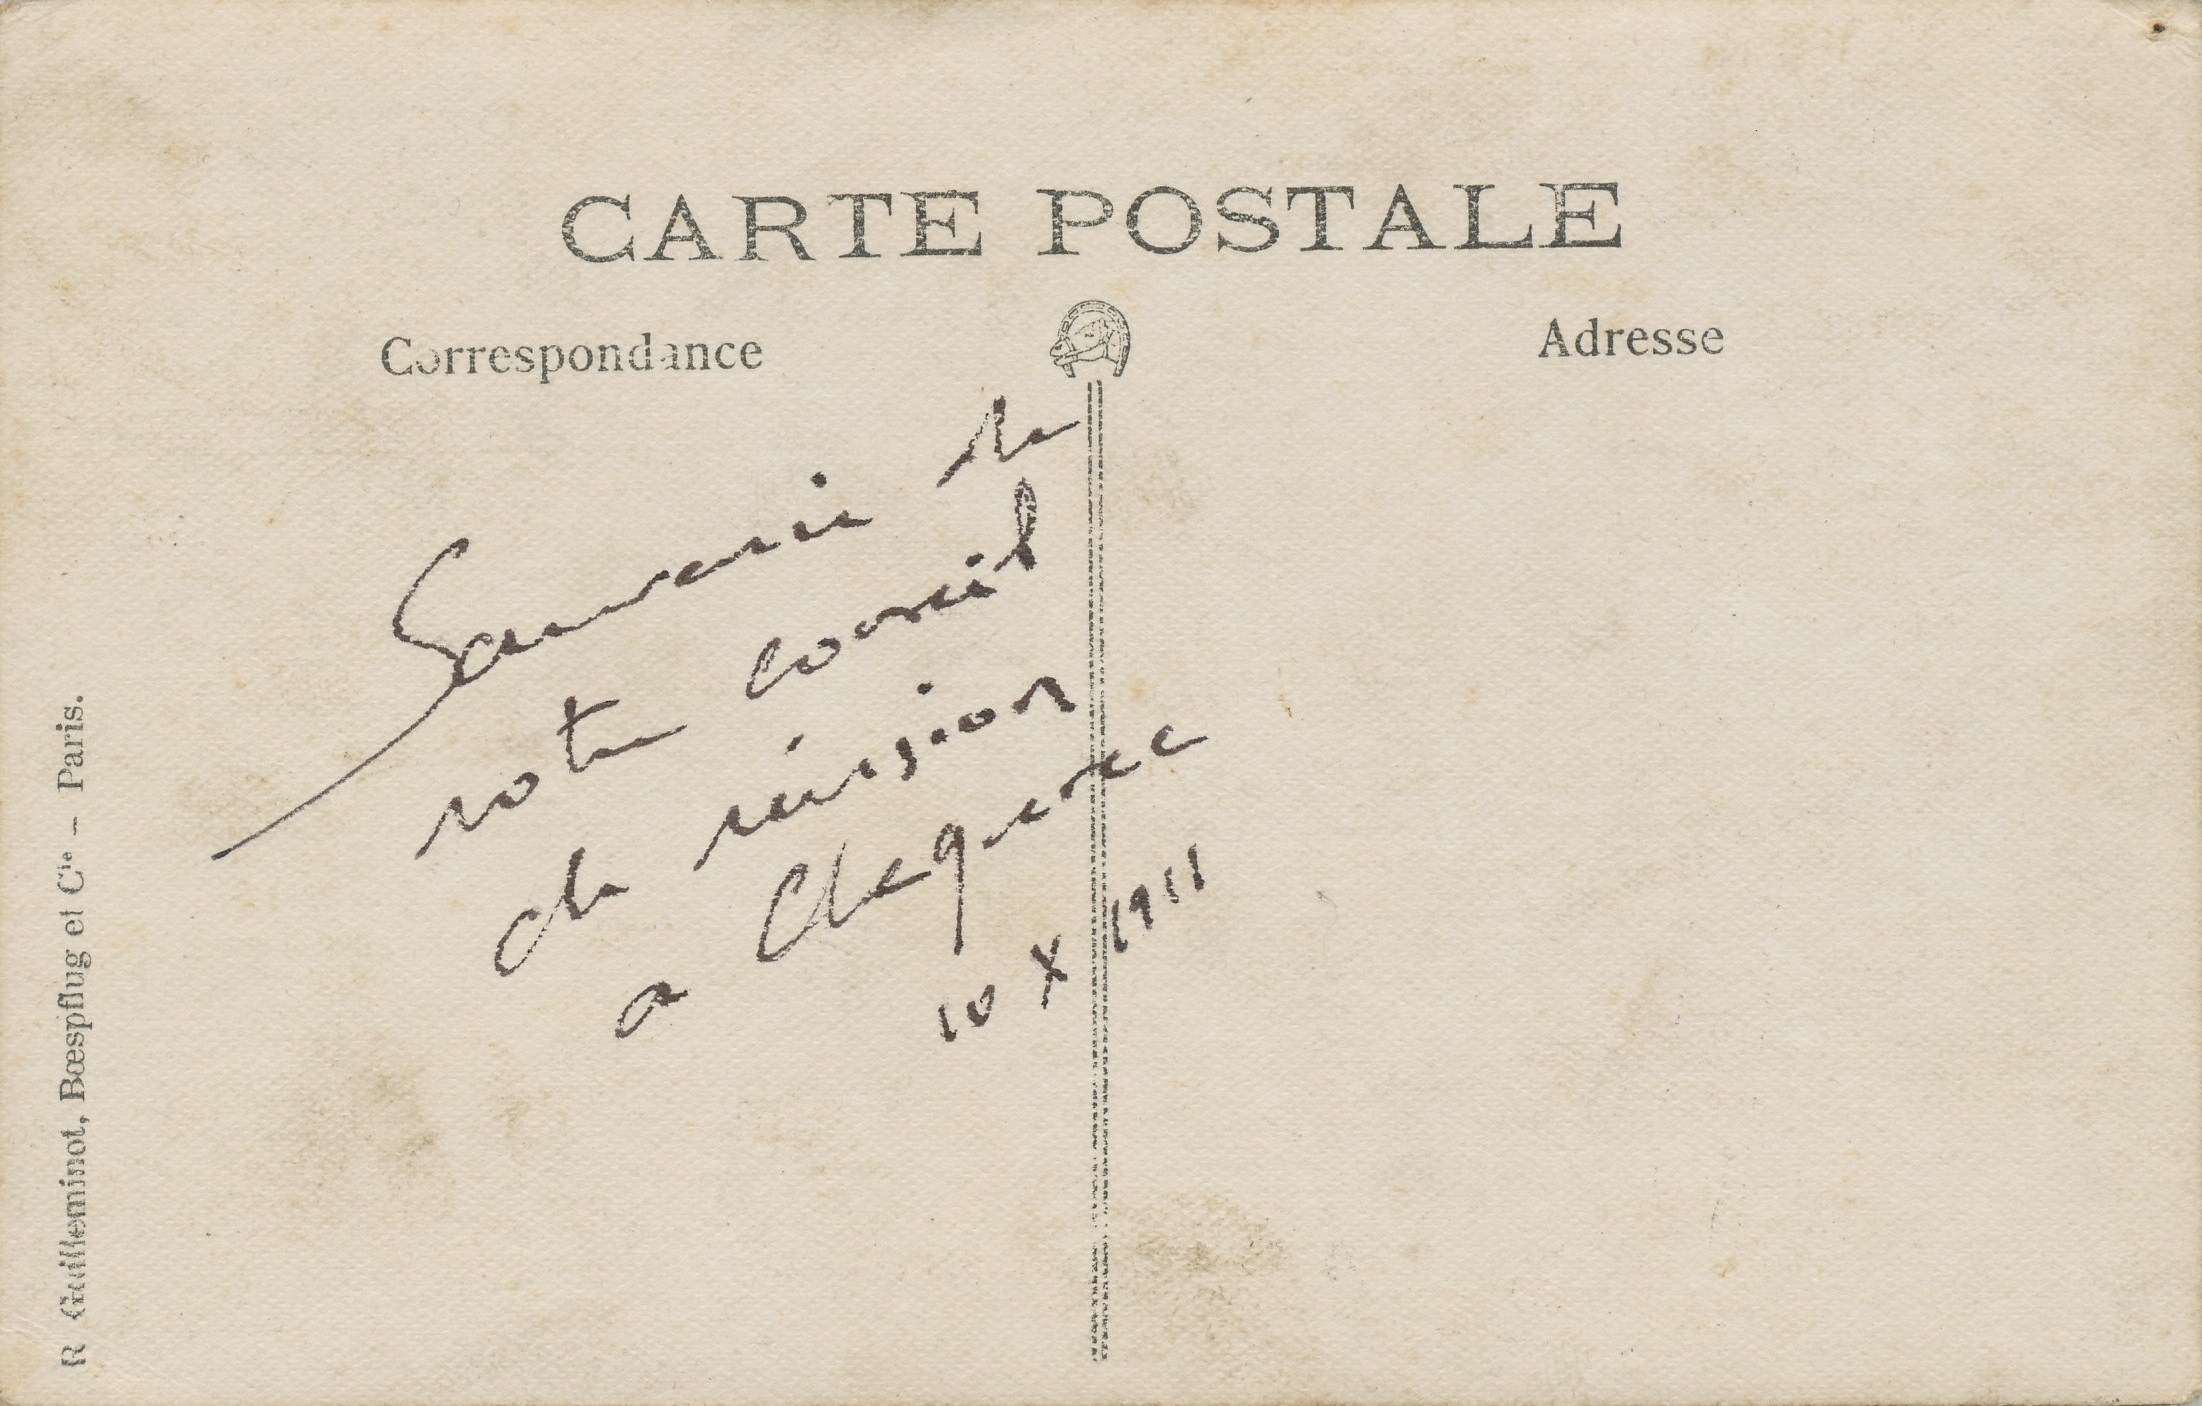 CARTE POSTALE
Correspondance
Adresse
Souvenir de
notre conseil
de révision
a Cleguerec
10 X 1911
R Guilleminot, Bœspflug et Cie – Paris.